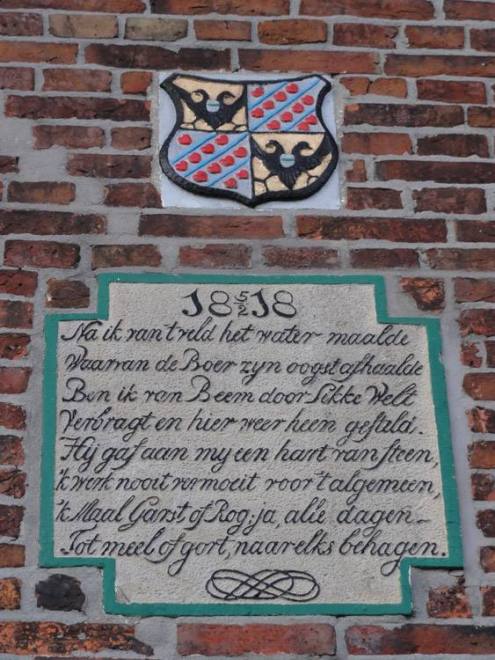 18 5/2 18
Na ik van't veld het water maalde
Waarvan de Boer zyn oogst afhaalde
Ben ik van Beem door Sikke Welt
Verbragt en hier weer heen gesteld.
Hij gaf aan my een hart van steen,
'k werk nooit vermoeit voor 't algemeen,
'k Maal Garst, of Rog; ja, alle dagen
Tot meel of gort, naar elks behagen.